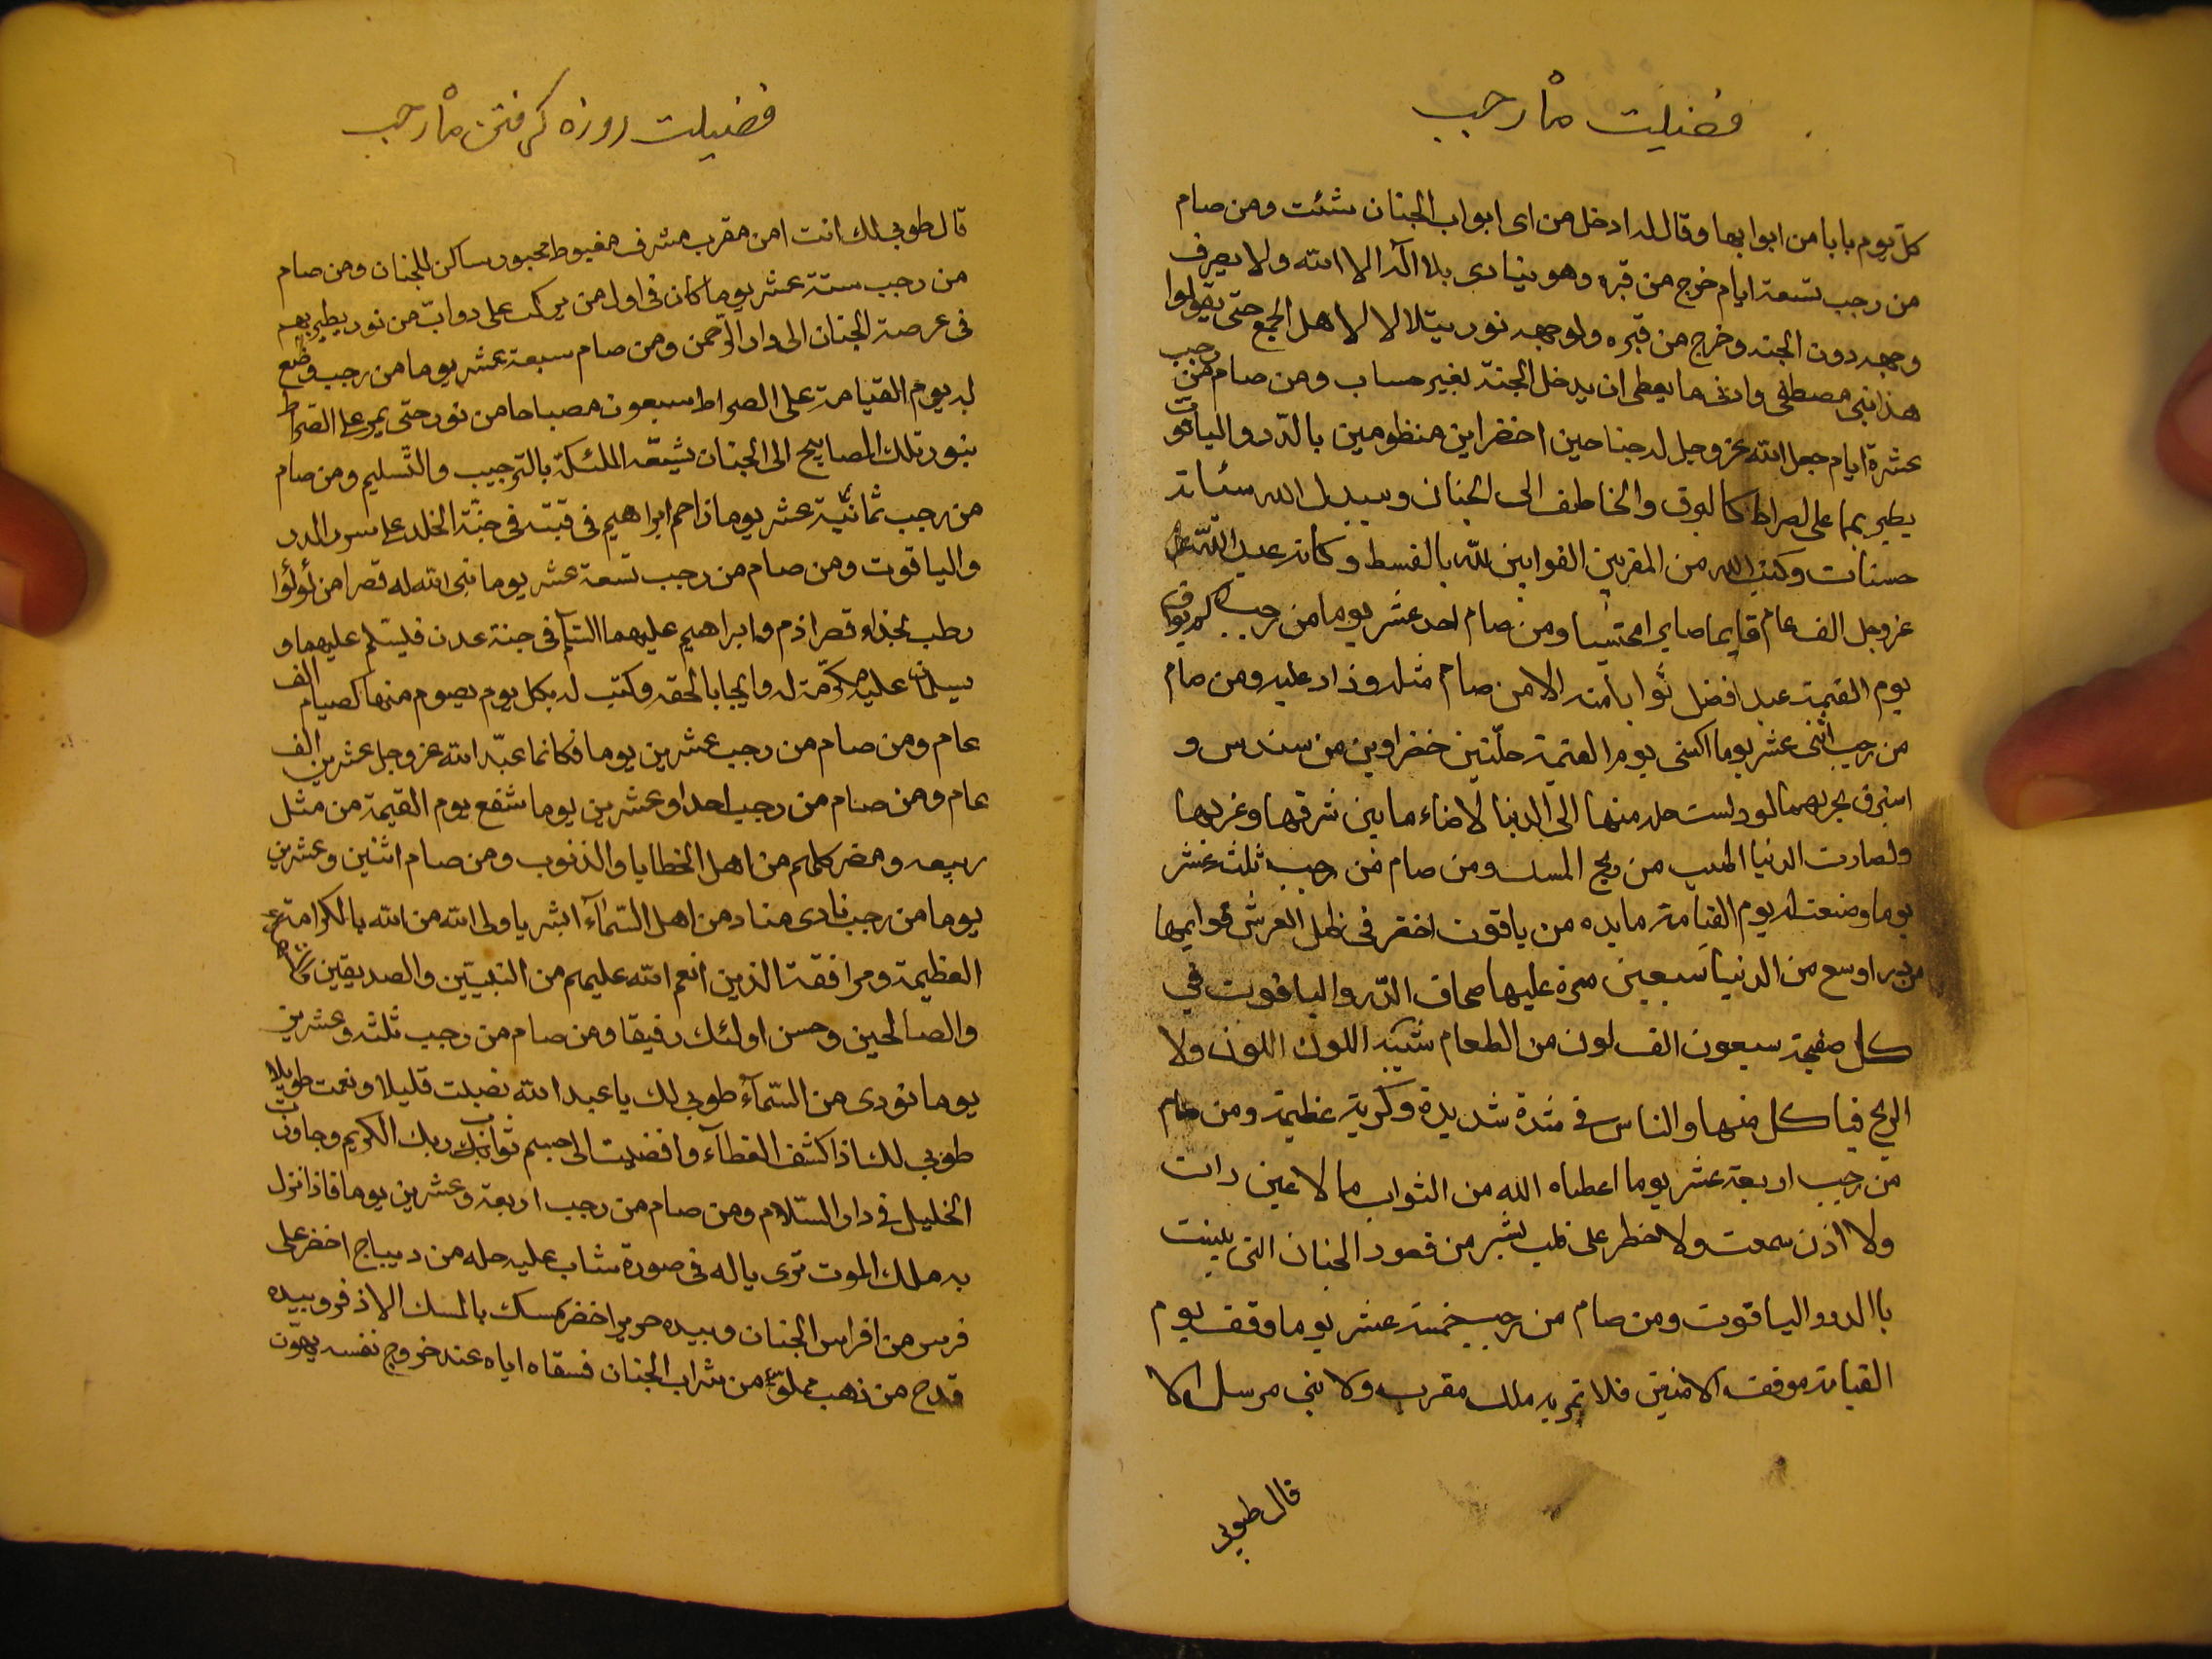 فضیلت ماه رجب
كلّ يوم بابا من ابوابها وقال له ادخل من اى ابواب الجنان شئت ومن صام
من رجب تسعة ايام خرج من قبره وهو ينادى بلا اله الا الله ولا يصرف
وجهه دون الجنه وخرج من قبره ولوجهه نور يتلالا لاهل الجمع حتى يقولوا
هذا نبى مصطفى وان ما يعطى ان يدخل الجنّة بغير حساب ومن صام من رجب
عشرة ايام جعل الله عز وجل له جناحين اخضراين منظومين بالدّر والياقوت
يطير بهما على الصراط كالبرق والخاطف الى الجنان ويبدل الله سئاته
حسنات وكتب الله من المقربين القوابين لله بالقسط وكانه عبد الله
عز وجل الف عام قايما صايرا محتسبا ومن صام احد عشر يوما من رجب لم يوف
يوم القيمة عبد افضل ثوابا منه الا من صام مثله وزاد عليه ومن صام
من رجب اثنى عشر يوما اكسى يوم القيمة حلّتين خضراوين من سندس و
استبرق يجر بهما لو دلست حله منها الى الدنيا لاضاء ما بين شرقها وغربها
ولصارت الدنيا اطيب من ريح المسك ومن صام من رجب ثلث عشر
يوما وضعت له يوم القيامة مايده من ياقوت اخضر فى ظل العرش قوايمها
من در اوسع من الدنيا سبعين مرة عليها صحاف الدّر والياقوت في
كل صفحة سبعون الف لون من الطعام شبيه اللون اللون ولا
الريح فيا كل منها والناس في شدة شديدة وكربة عظيمة ومن صام
من رجب اربعة عشر يوما اعطاه الله من الثواب ما لا عين رات
ولا اذن سمعت ولا خطر على قلب بشر من قصور الجنان التى بنيت
باالدر والياقوت ومن صام من رجب خمسة عشر يوما وقف يوم
القيامة موقف الامنين فلا تمر به ملك مقرب ولا نبى مرسل الا
قال طوبى
فضیلت روزه گرفتن ماه رجب
قال طوبى لك انت امن مقرب مشرف مغبوط محبور ساكن للجنان ومن صام
من رجب ستة عشر يوما كان فى اول من يركب على دوابّ من نور يطير بهم
فى عرصة الجنان الى دار الرّحمن ومن صام سبعة عشر يوما من رجب وضع
له يوم القيامة على الصراط سبعون مصباحا من نور حتى يمر على الصّراط
بنور تلك المصابيح الى الجنان تشيعّه الملئكة بالترحيب والتّسليم ومن صام
من رجب ثمانية عشر يوما زاحم ابراهيم فى قبته فى جنّة الخلد على سرر الدر
والياقوت ومن صام من رجب تسعة عشر يوما بنى الله له قصرا من لؤلؤا
رطب بحذاء قصر ادم وابراهيم عليهما السّلم فى جنة عدن فليسّلم عليهما و
يسلمان عليه مكرّمة له وايجابا لحقه وكتب له بكل يوم يصوم منها كصيام الف
عام ومن صام من رجب عشرين يوما فكانما عبد الله عز وجل عشرين الف
عام ومن صام من رجب احدا وعشرين يوما شفع يوم القيمة من مثل
ربيعه ومضر كلهم من اهل الخطايا والذنوب ومن صام اثنين وعشرين
يوما من رجب نادى مناد من اهل السّمآء ابشر يا ولى الله من الله بالكرامة
العظيمة ومرافقة الذين انعم الله عليهم من النبيّين والصديقين
والصالحين وحسن اولئك رفيقا ومن صام من رجب ثلثه وعشرين
يوما نودى من السّمآء طوبى لك يا عبد الله نصبت قليلا ونعمت طويلا
طوبى لك اذا كشف الغطآء وافضيت الى جسيم ثواب ربك الكريم وجاورت
الخليل فى دار السّلام ومن صام من رجب اربعة وعشرين يوما فاذا نزل
به ملك الموت ترى ياله فى صورة شاب عليه حله من ديباج اخضر على
فرس من افراس الجنان وبيده حريرا خضر ممسك بالمسك الاذفر وبيده
قدح من ذهب مملوّ من شراب الجنان فسقاه اياه عند خروج نفسه يهون